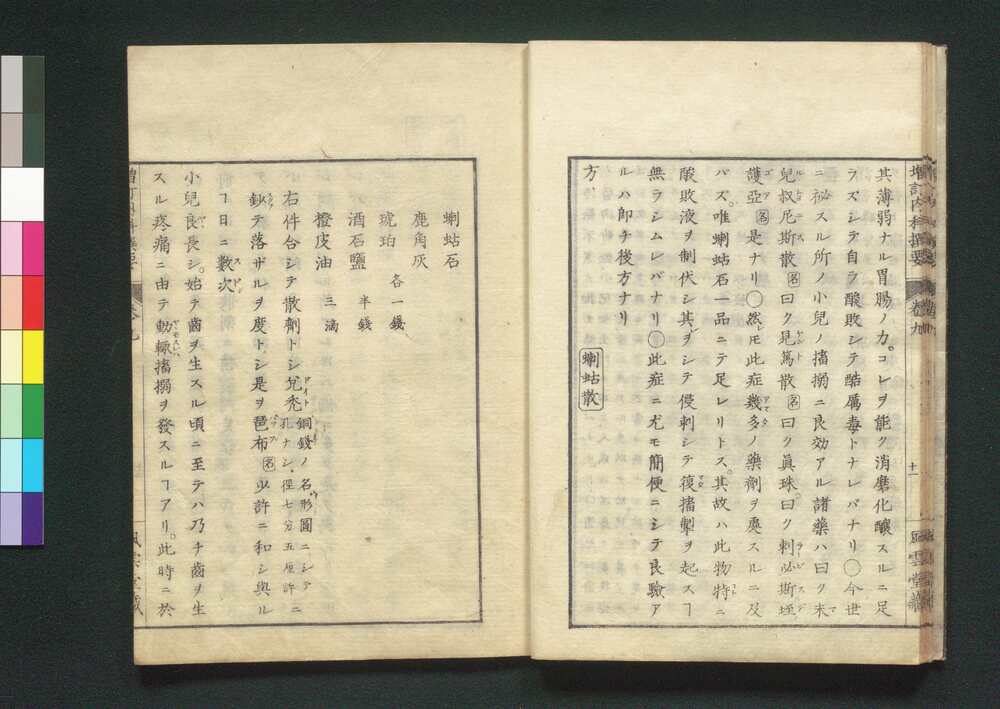 増訂内科撰要 卷九 十一 風雲堂藏
其薄弱ナル胃腸ノ力。コレヲ能ク消磨化釀スルニ足
ラズシテ自ラ酸敗シテ酷厲毒トナレバナリ〇今世
ニ祕スル所ノ小兒ノ搐搦ニ良効アル諸藥ハ曰ク末
兒叔尼斯散名曰ク見篤散名曰ク眞珠。曰ク刺必斯垤
護亞名是ナリ〇然𪜈此症幾多ノ藥劑ヲ處スルニ及
バズ。唯蝲蛄石一品ニテ足レリトス。其故ハ此物特ニ
酸敗液ヲ制伏シ其ヲシテ侵刺シテ復搐掣ヲ起スヿ
無ラシムレバナリ〇此症ニ尤モ簡便ニシテ良驗ア
ルハ即チ後方ナリ
方 蝲蛄散
蝲蛄石
鹿角灰
琥珀 各一錢
酒石鹽 半錢
橙皮油 三滴
右件合シテ散劑トシ兌禿 銅錢ノ名形圓ニシテ孔ナシ。徑七分五厘許 ニ
釟テ落ザルヲ度トシ是ヲ芭布名少許ニ和シ與ル
ヿ日ニ數次
小兒良長シ。始テ齒ヲ生スル頃ニ至テハ乃チ齒ヲ生
スル疼痛ニ由テ動輙搐搦ヲ發スルヿアリ。此時ニ於